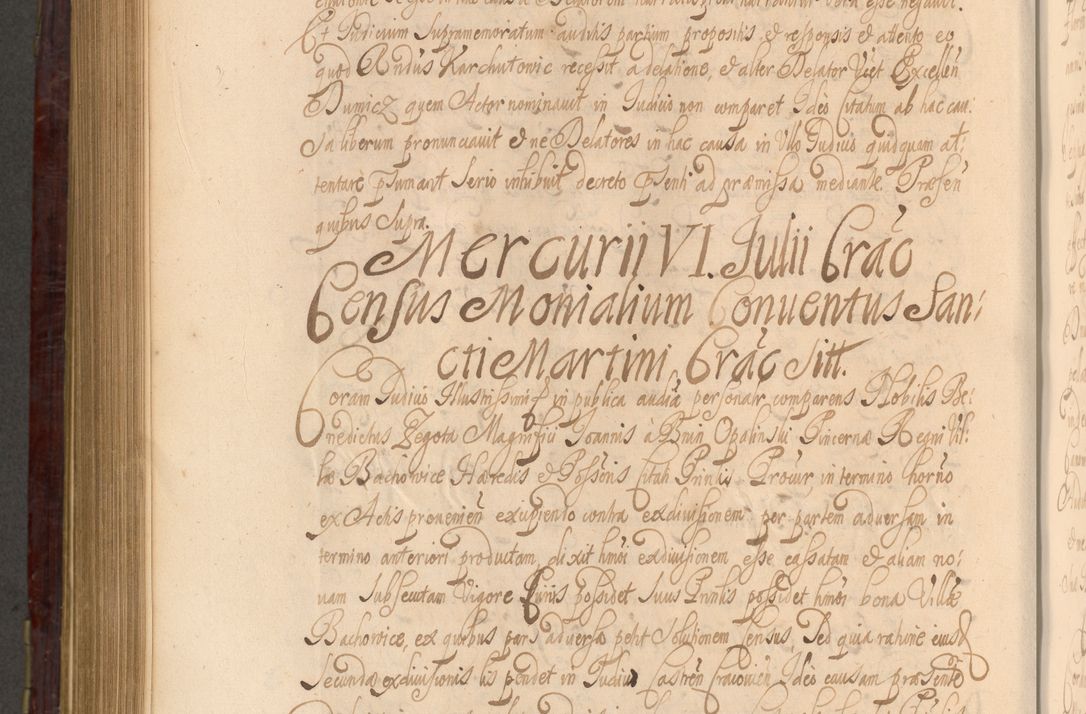 Et Judicium Supramemoratum auditis partium propositis et responsis et attento eo
quod Andus Karchutowic recessit a delatione, et alter Delator Vict Excellen
Dumicz quem Actor nominauit in Judicio non comparet Ideo Citatum ab hac cau
sa liberum pronunciauit et ne Delatores in hac causa in Vllo Judicio quidquam at:
tentare psumant serio inhibuit decreto psenti ad præmissa mediante. Præsen
quibus supra.
Mercurii VI. Julii Crac
Census Monialium Conuentus San:
cti Martini Crac sitt.
Coram Judicio Illustrissimi in publica audia personalr comparens Nobilis Be:
nedictus Zegota Magnifici Joannis à Bnin Opalinski Pincernæ Regni Vil:
læ Bachowice Hæredis et Possoris Citati Prinlis Procur in termino horno
ex Actis proueniен excipiendo contra exdiuisionem per partem aduersam in
termino anteriori productam, dixit hmoi exdiuisionem esse cassatam et aliam no:
uam subsecutam Vigore cuius possidet suus Prinlis possidet hmoi bona Villæ
Bachowicæ, ex quibus pars aduersa petit solutionem Census, Sed quia ratione eiusd
secundæ exdiuisionis lis pendet in Judicio Castren Cracouien Ideo causam præsente